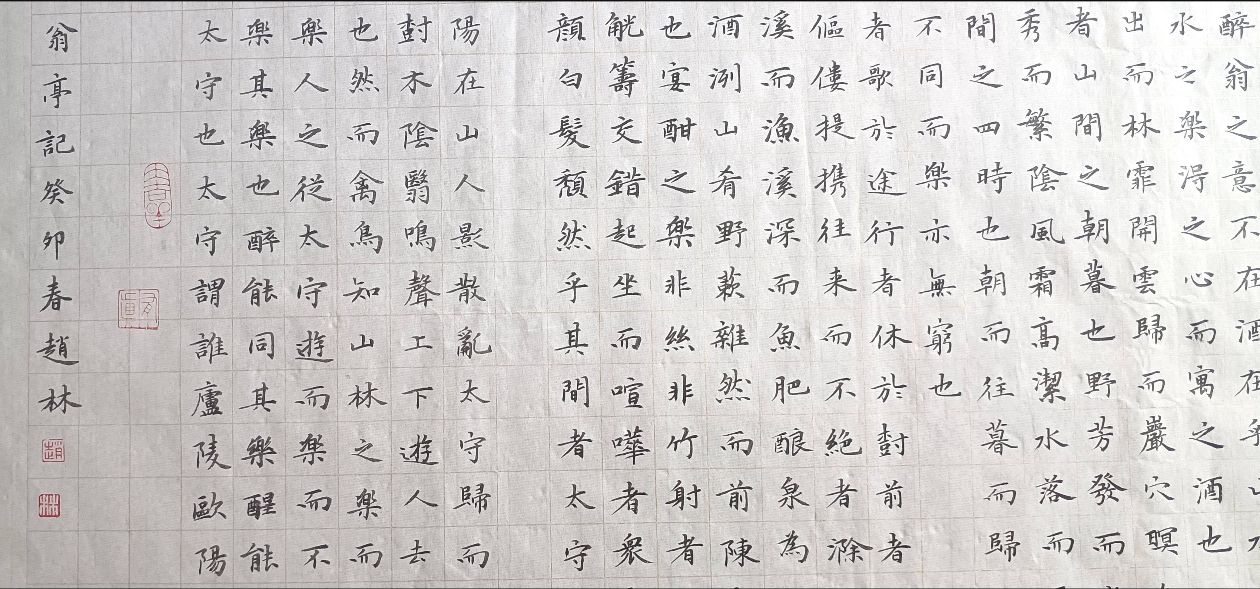 醉翁之意不在酒在乎山
水之樂得之心而寓之酒也
出而林霏開雲歸而巖穴暝
者山間之朝暮也野芳發而
秀而繁陰風霜高潔水落而
間之四時也朝而往暮而歸
不同而樂亦無窮也
者歌於途行者休於樹前者
傴僂提携往来而不絶者滁
溪而漁溪深而魚肥釀泉為
酒洌山肴野蔌雜然而前陳
也宴酣之樂非絲非竹射者
觥籌交錯起坐而喧嘩者衆
顏白髮頹然乎其間者太守
陽在山人影散亂太守歸而
樹木陰翳鳴聲上下遊人去
也然而禽鳥知山林之樂而
樂人之從太守遊而樂而不
樂其樂也醉能同其樂醒能
太守也太守謂誰廬陵歐陽
翁亭記癸卯春趙林
趙
林